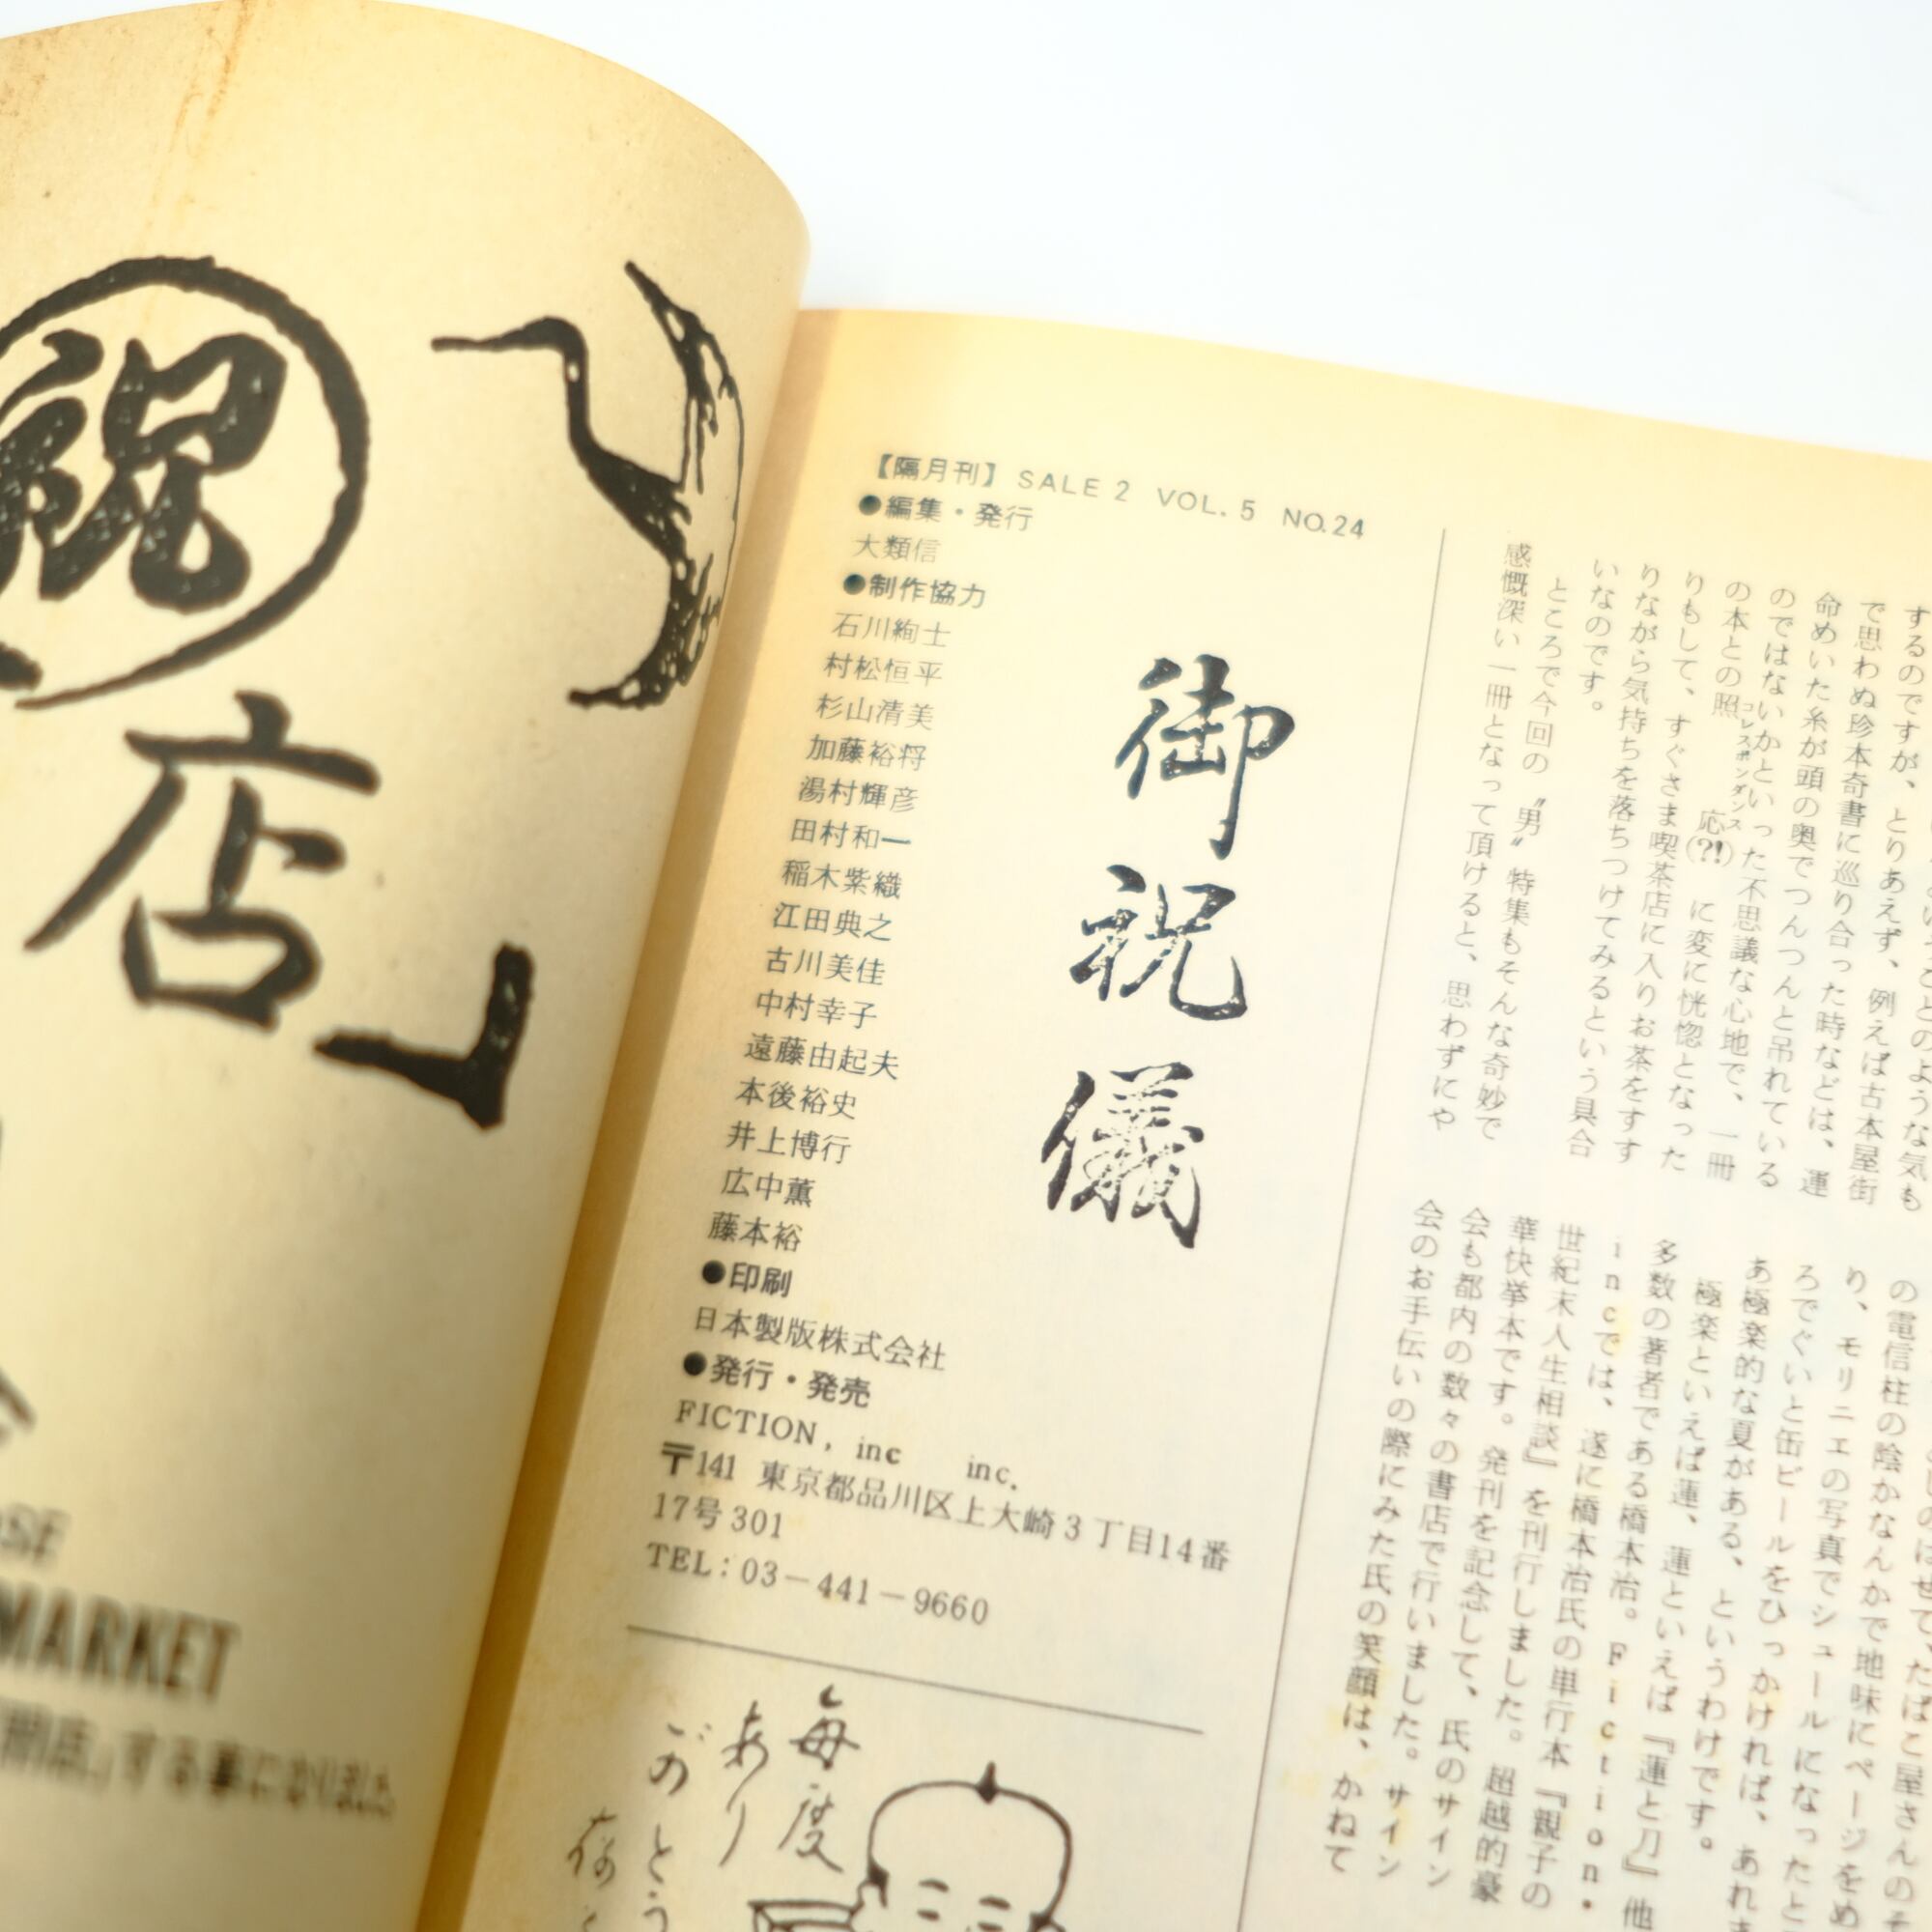 祝
店
」
MARKET
【隔月刊】 SALE 2 VOL. 5 NO.24
●編集・発行
大類信
●制作協力
石川絢士
村松恒平
杉山清美
加藤裕将
湯村輝彦
田村和一
稲木紫織
江田典之
古川美佳
中村幸子
遠藤由起夫
本後裕史
井上博行
広中薫
藤本裕
●印刷
日本製版株式会社
●発行・発売
FICTION, inc inc.
〒141 東京都品川区上大崎3丁目14番
17号301
TEL: 03-441-9660
御祝儀
毎度
あり
するのですが、とりあえず、例えば古本屋街
で思わぬ珍本奇書に巡り合った時などは、運
命めいた糸が頭の奥でつんつんと吊れている
のではないかといった不思議な心地で、一冊
の本との照応(?!)に変に恍惚となった
コレスポンダンス
りもして、すぐさま喫茶店に入りお茶をすす
りながら気持ちを落ちつけてみるという具合
いなのです。
ところで今回の〝男〟特集もそんな奇妙で
感慨深い一冊となって頂けると、思わずにや
の電信柱の陰かなんかで地味にページをめ
り、モリニエの写真でシュールになったと
ろでぐいと缶ビールをひっかければ、あれ
あ極楽的な夏がある、というわけです。
極楽といえば蓮、蓮といえば『蓮と刀』他
多数の著者である橋本治。Fiction.
incでは、遂に橋本治氏の単行本『親子の
世紀末人生相談』を刊行しました。超越的豪
華快挙本です。発刊を記念して、氏のサイン
会も都内の数々の書店で行いました。サイン
会のお手伝いの際にみた氏の笑顔は、かねて